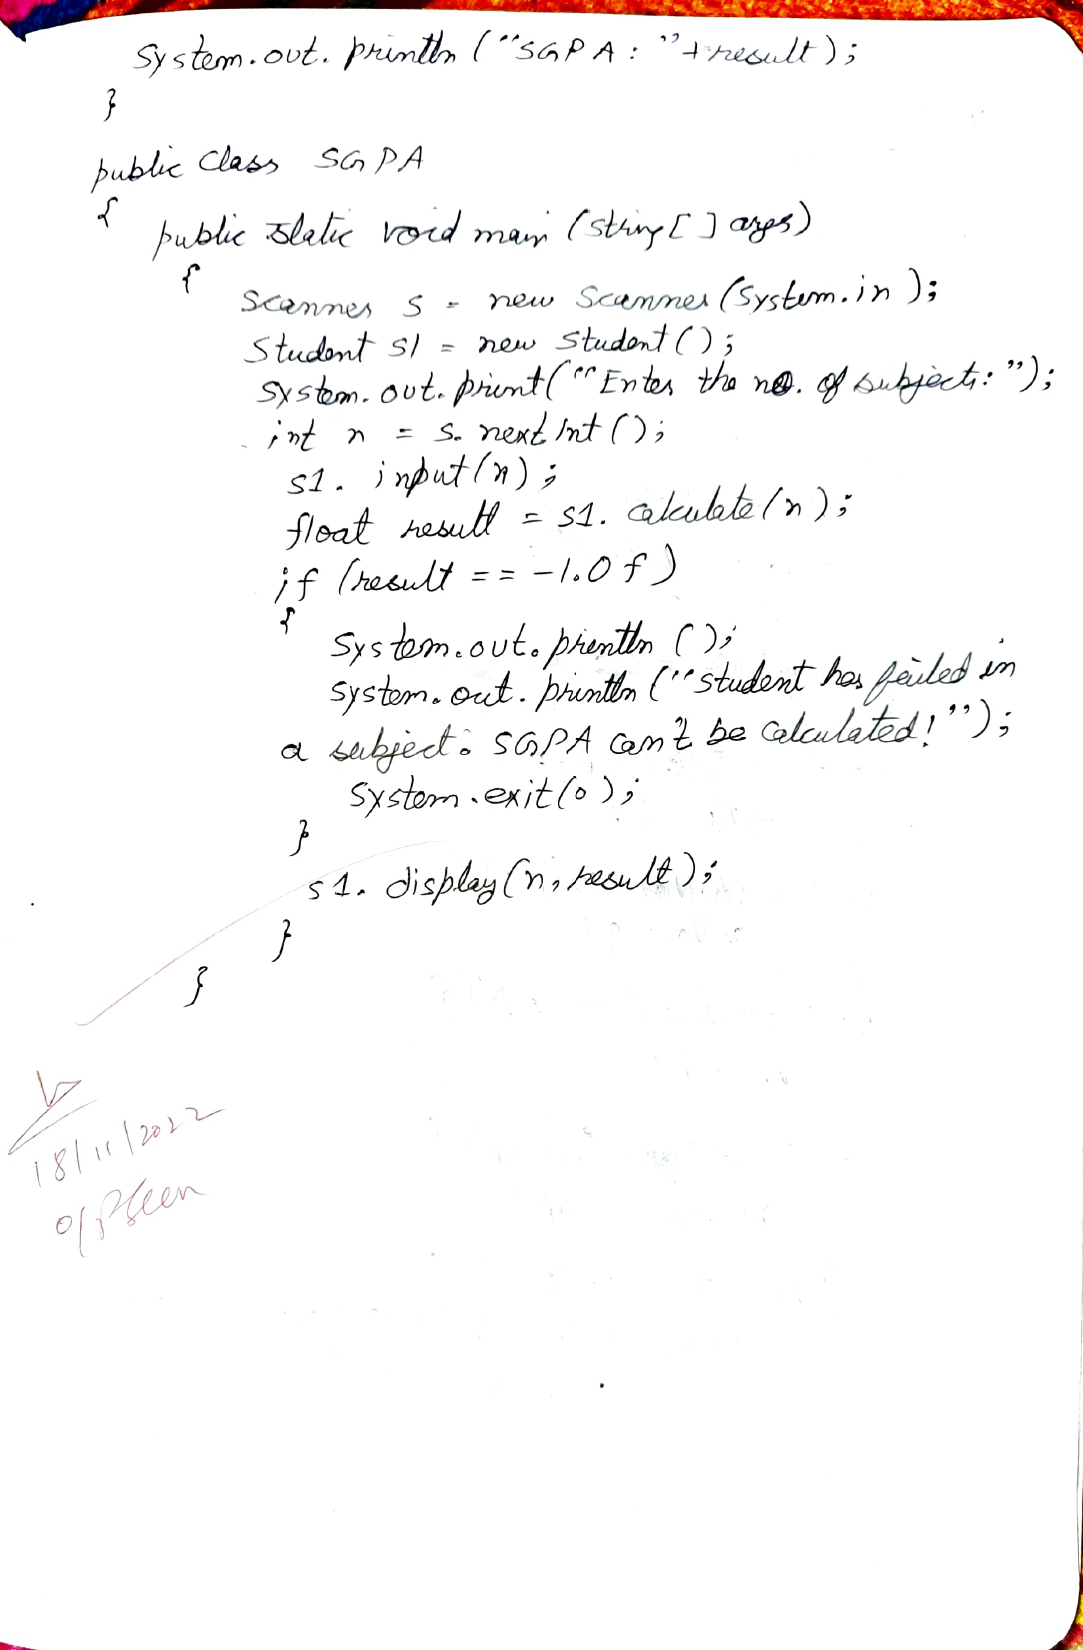 System.out.println ("SGPA: "+result);
}
public class SGPA
{
public static void main (string[] args)
{
Scanner s = new Scanner(System.in);
Student s1 = new Student();
System.out.print("Enter the no. of subjects: ");
int n = s.nextInt();
s1. input(n);
float result = s1. calculate(n);
if (result == -1.0f)
{
System.out.println ();
System.out.println ("Student has failed in
a subject. SGPA can't be calculated!");
System.exit(0);
}
s1. display(n, result);
}
}
18/11/2022
O/P Seen